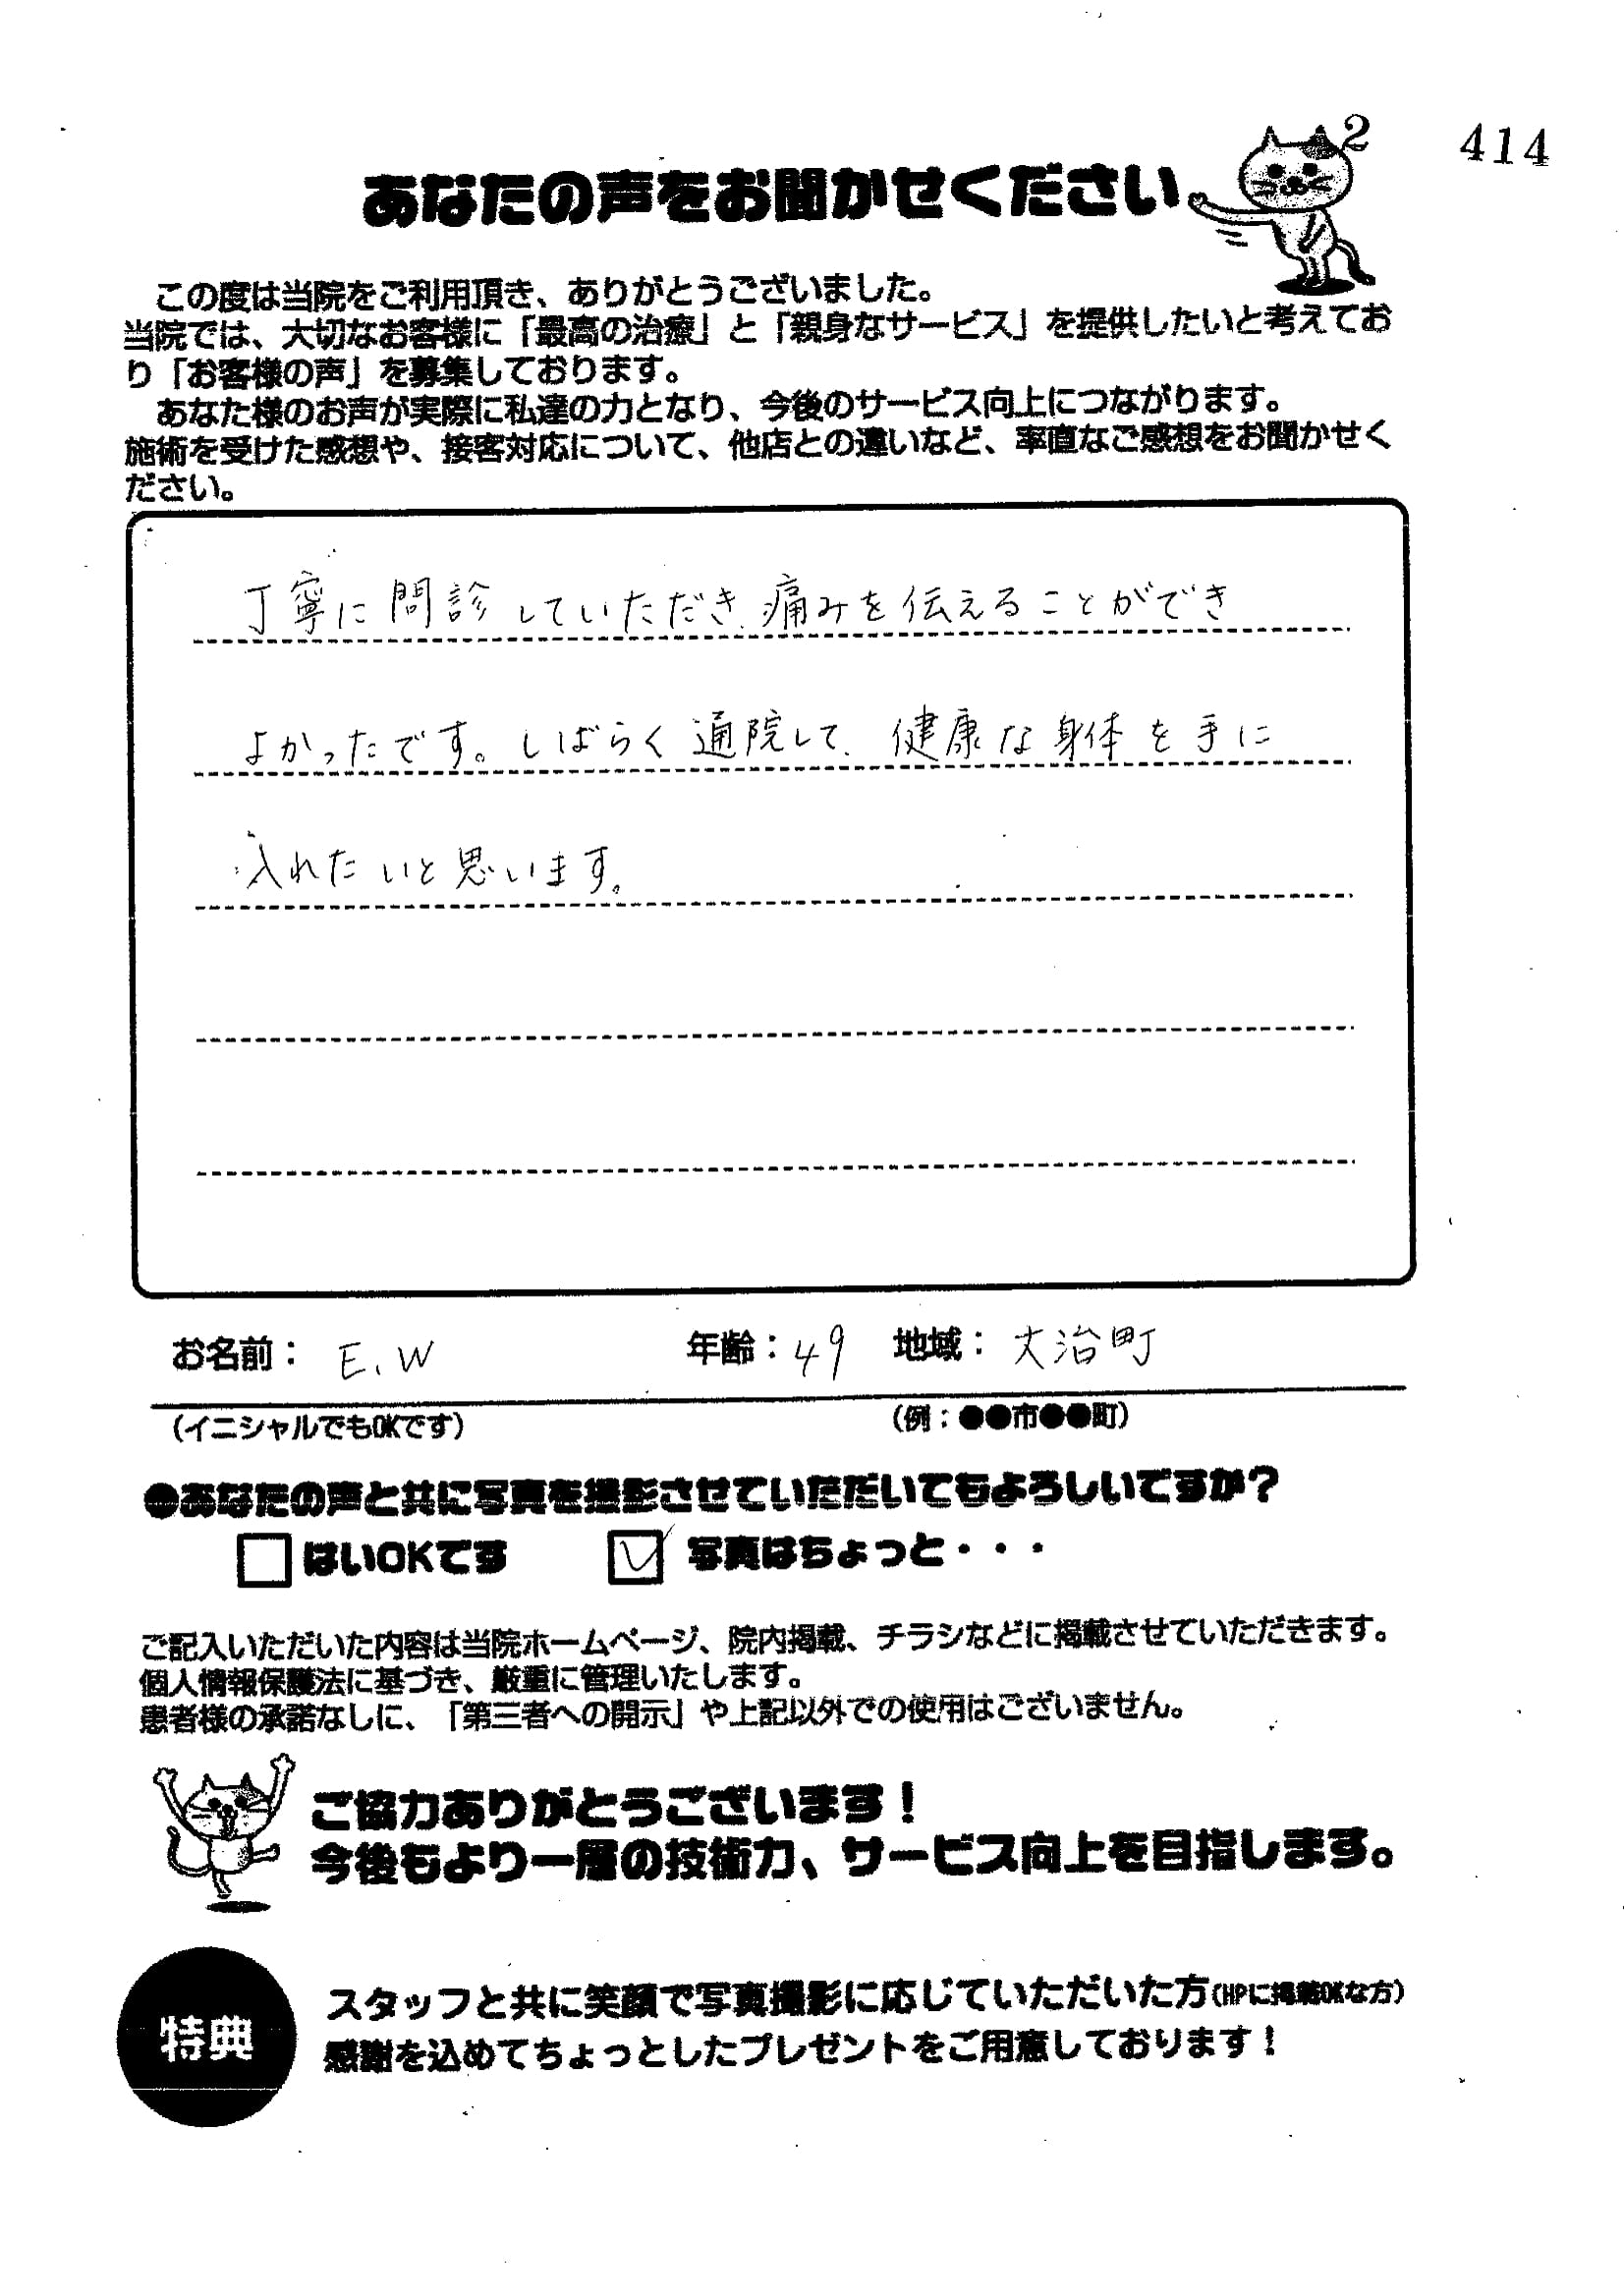 2
414
あなたの声をお聞かせください
この度は当院をご利用頂き、ありがとうございました。
当院では、大切なお客様に「最高の治療」と「親身なサービス」を提供したいと考えてお
り「お客様の声」を募集しております。
あなた様のお声が実際に私達の力となり、今後のサービス向上につながります。
施術を受けた感想や、接客対応について、他店との違いなど、率直なご感想をお聞かせく
ださい。
丁寧に問診していただき、痛みを伝えることができ
よかったです。しばらく通院して、健康な身体を手に
入れたいと思います。
お名前： E.W 年齢：49 地域：大治町
（イニシャルでもOKです） （例：●●市●●町）
●あなたの声と共に写真を撮影させていただいてもよろしいですか？
はいOKです 写真はちょっと・・・
ご記入いただいた内容は当院ホームページ、院内掲載、チラシなどに掲載させていただきます。
個人情報保護法に基づき、厳重に管理いたします。
患者様の承諾なしに、「第三者への開示」や上記以外での使用はございません。
ご協力ありがとうございます！
今後もより一層の技術力、サービス向上を目指します。
特典
スタッフと共に笑顔で写真撮影に応じていただいた方（HPに掲載OKな方）
感謝を込めてちょっとしたプレゼントをご用意しております！